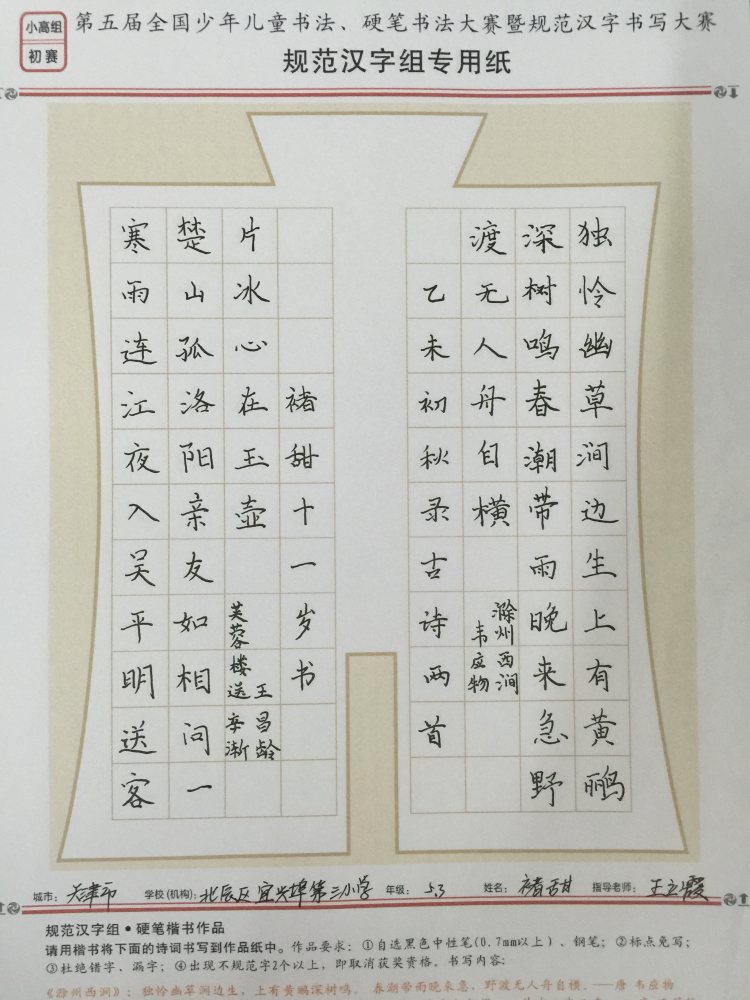 小高组
初赛
第五届全国少年儿童书法、硬笔书法大赛暨规范汉字书写大赛
规范汉字组专用纸
独怜幽草涧边生上有黄鹂
深树鸣春潮带雨晚来急野
渡无人舟自横
滁州西涧
韦应物
乙未初秋录古诗两首
寒雨连江夜入吴平明送客
楚山孤洛阳亲友如相问一
片冰心在玉壶
芙蓉楼送辛渐
王昌龄
褚甜十一岁书
城市：天津市 学校(机构)：北辰区宜兴埠第三小学 年级：5.3 姓名：褚甜 指导老师：王立霞
规范汉字组·硬笔楷书作品
请用楷书将下面的诗词书写到作品纸中。作品要求：①自选黑色中性笔(0.7mm以上)、钢笔；②标点免写；
③杜绝错字、漏字；④出现不规范字2个以上，即取消获奖资格。书写内容：
《滁州西涧》：独怜幽草涧边生，上有黄鹂深树鸣。春潮带雨晚来急，野渡无人舟自横。——唐 韦应物